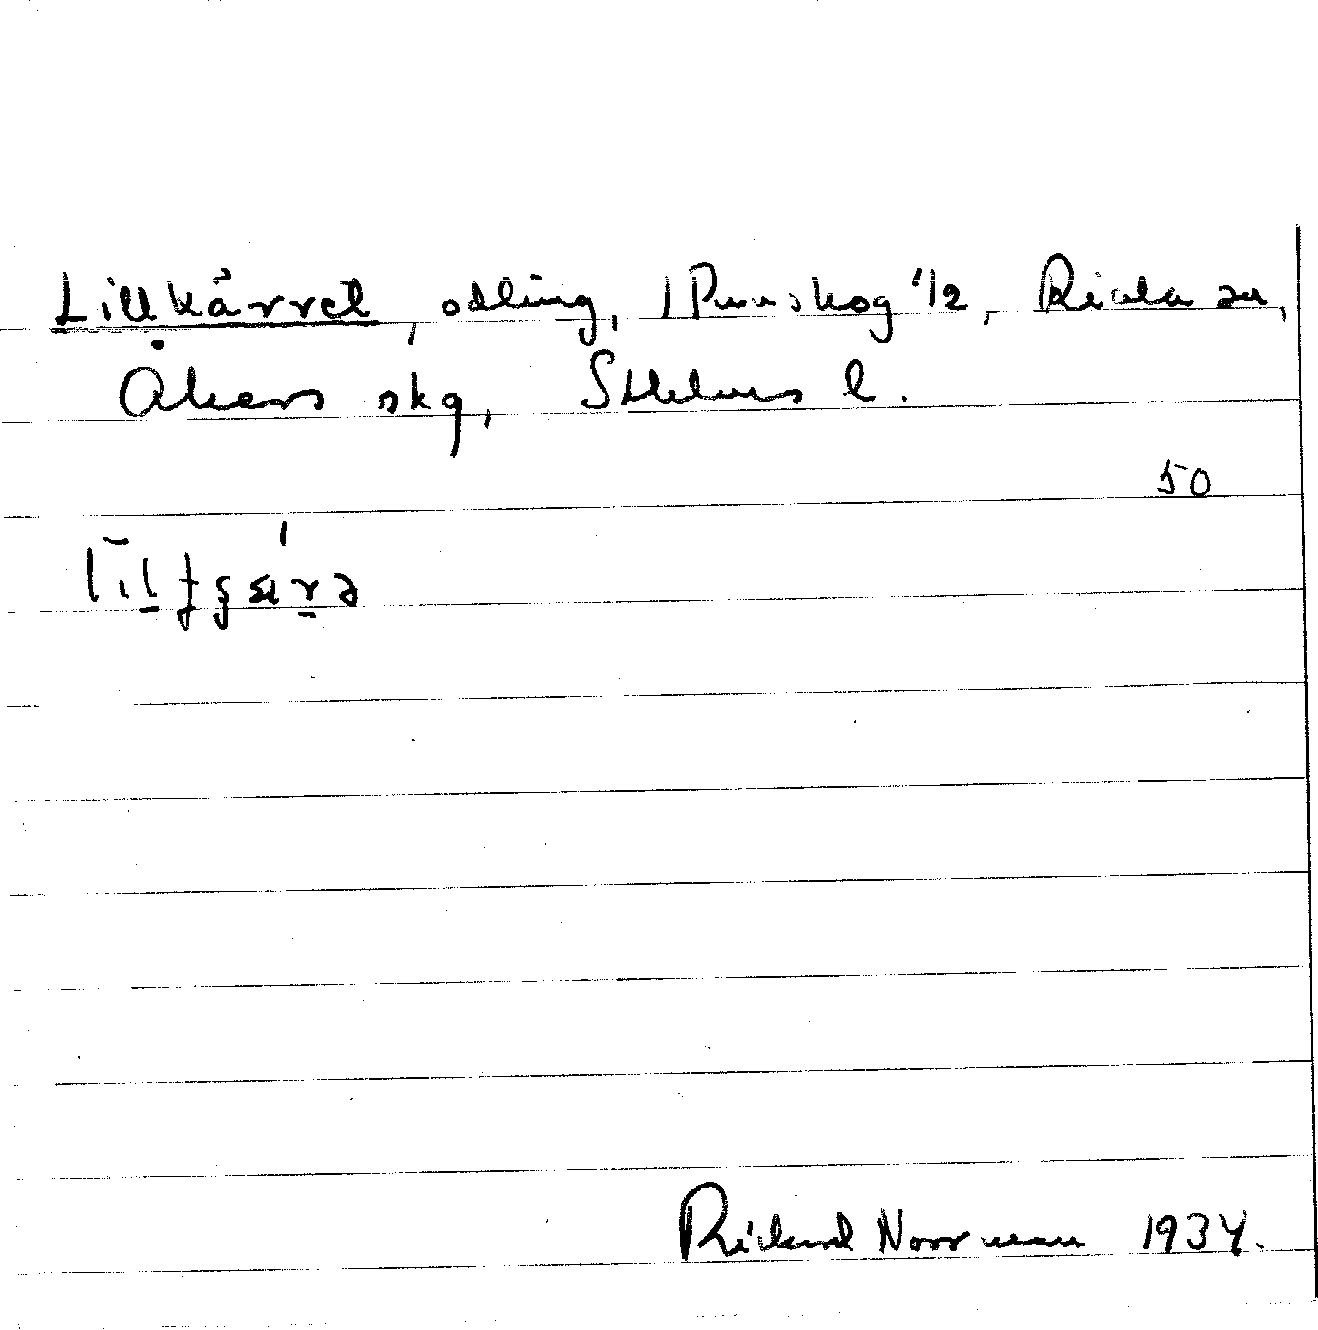 Lillkärret, odling, Skog 1/2, Riala sn,
Åkers skg, Sthlms l.
50
Rickard Norrman 1934.